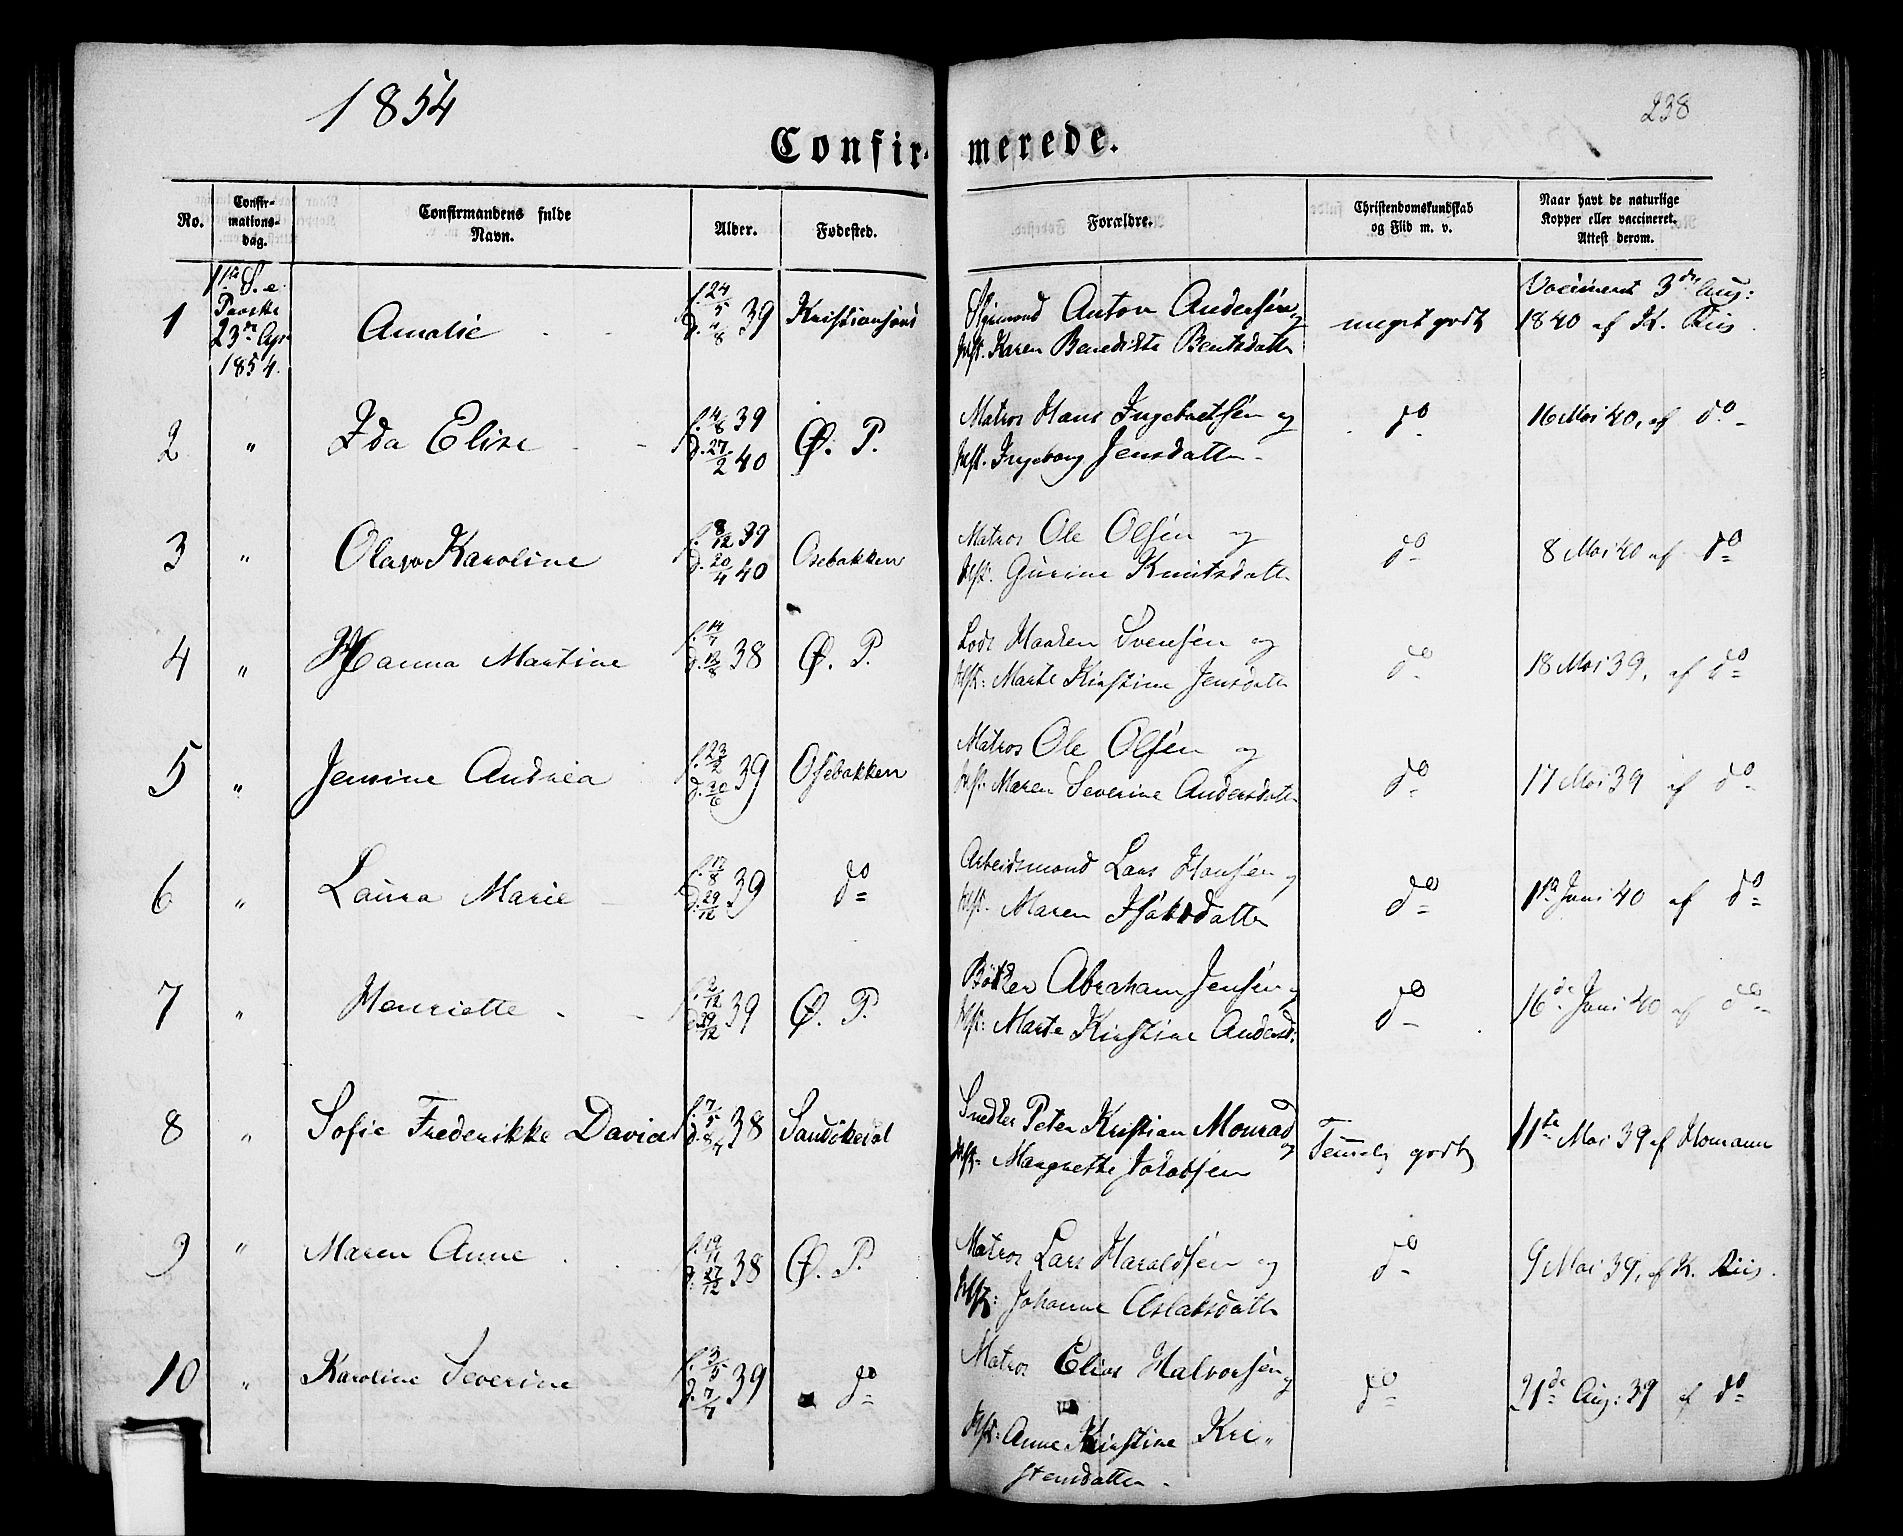 1854
238
Confir- merede.
No.
Confir-
mations-
dag.
Confirmandens fulde
Navn.
Alder.
Fødested.
Forældre.
Christendomskundskab
og Flid m. v.
Naar havt de naturlige
Kopper eller vaccineret.
Attest derom.
1 11te S. e. Paaske 23de Apr 1854. Amalie f. 24/5 d. 4/8 39 Kristiansand
Anton Andersen og Hst. Karen Benedikte Bentsdatter meget godt Vaccineret 3die Aug: 1840 af K. Riis
2 " Ida Elise f. 4/8 39 d. 27/2 40 Ø. P.
Matros Hans Ingebretsen og Hst. Ingeborg Jensdatter do 16 Mai 40, af do
3 " Olava Karoline f. 8/12 39 d. 20/4 40 Osebakken
Matros Ole Olsen og Hst. Gurine Knutsdatter do 8 Mai 40 af do
4 " Hanna Martine f. 14/7 d. 12/8 38 Ø. P.
Lods Haaken Svensen og Hst: Marte Kirstine Jensdatter do 18 Mai 39, af do
5 " Jensine Andrea f. 23/2 d. 20/6 39 Osebakken
Matros Ole Olsen og Hst: Maren Severine Andersdatter do 17 Mai 39 af do
6 " Laura Marie f. 12/8 d. 29/12 39 do
Arbeidsmand Lars Hansen og Hst. Maren Isaksdatter do 11te Juni 40 af do
7 " Henriette f. 2/12 d. 29/12 39 Ø. P.
Bøtker Abraham Jensen og Hst: Marte Kirstine Andersd: do 16de Juni 40 af do
8 " Sofie Frederikke David f. 7/5 d. 8/7 38 Sandøkedal
Snedker Peter Kristian Monrad og Hst: Margrethe Jakobsen Temmelig godt 11te Mai 39 af Homann
9 " Maren Anne f. 19/11 d. 27/12 38 Ø. P.
Matros Lars Haraldsen og Hst: Johanne Aslaksdatter do 9 Mai 39, af K. Riis.
10 " Karoline Severine f. 3/5 d. 7/7 39 do
Matros Elias Halvorsen og Hst: Anne Kirstine Kri-
stensdatter. do 21de Aug: 39 af do